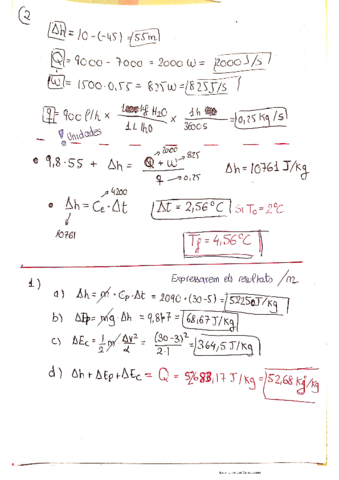 ②
Δh = 10 - (-45) = 55m
Q̇ = 9000 - 7000 = 2000 W = 2000 J/s
Ẇ = 1500·0,55 = 825 W = 825 J/s
q̇ = 900 l/h × 1kg H2O / 1 L H2O × 1h / 3600 s = 0,25 kg/s
Unidades
• 9,8·55 + Δh = Q + W / q Δh = 10761 J/kg
2000 825
0,25
4200
• Δh = Ce·Δt Δt = 2,56°C Si To = 2°C
10761
Tf = 4,56°C
1) Expressarem els resultats /m
a) Δh = m·Cp·Δt = 2090·(30-5) = 52250 J/kg
b) ΔEp = mg·Δh = 9,81·7 = 68,67 J/kg
c) ΔEc = 1/2 m Δv²/2 = (30-3)²/2·1 = 364,5 J/kg
d) Δh + ΔEp + ΔEc = Q = 52683,17 J/kg = 52,68 kJ/kg